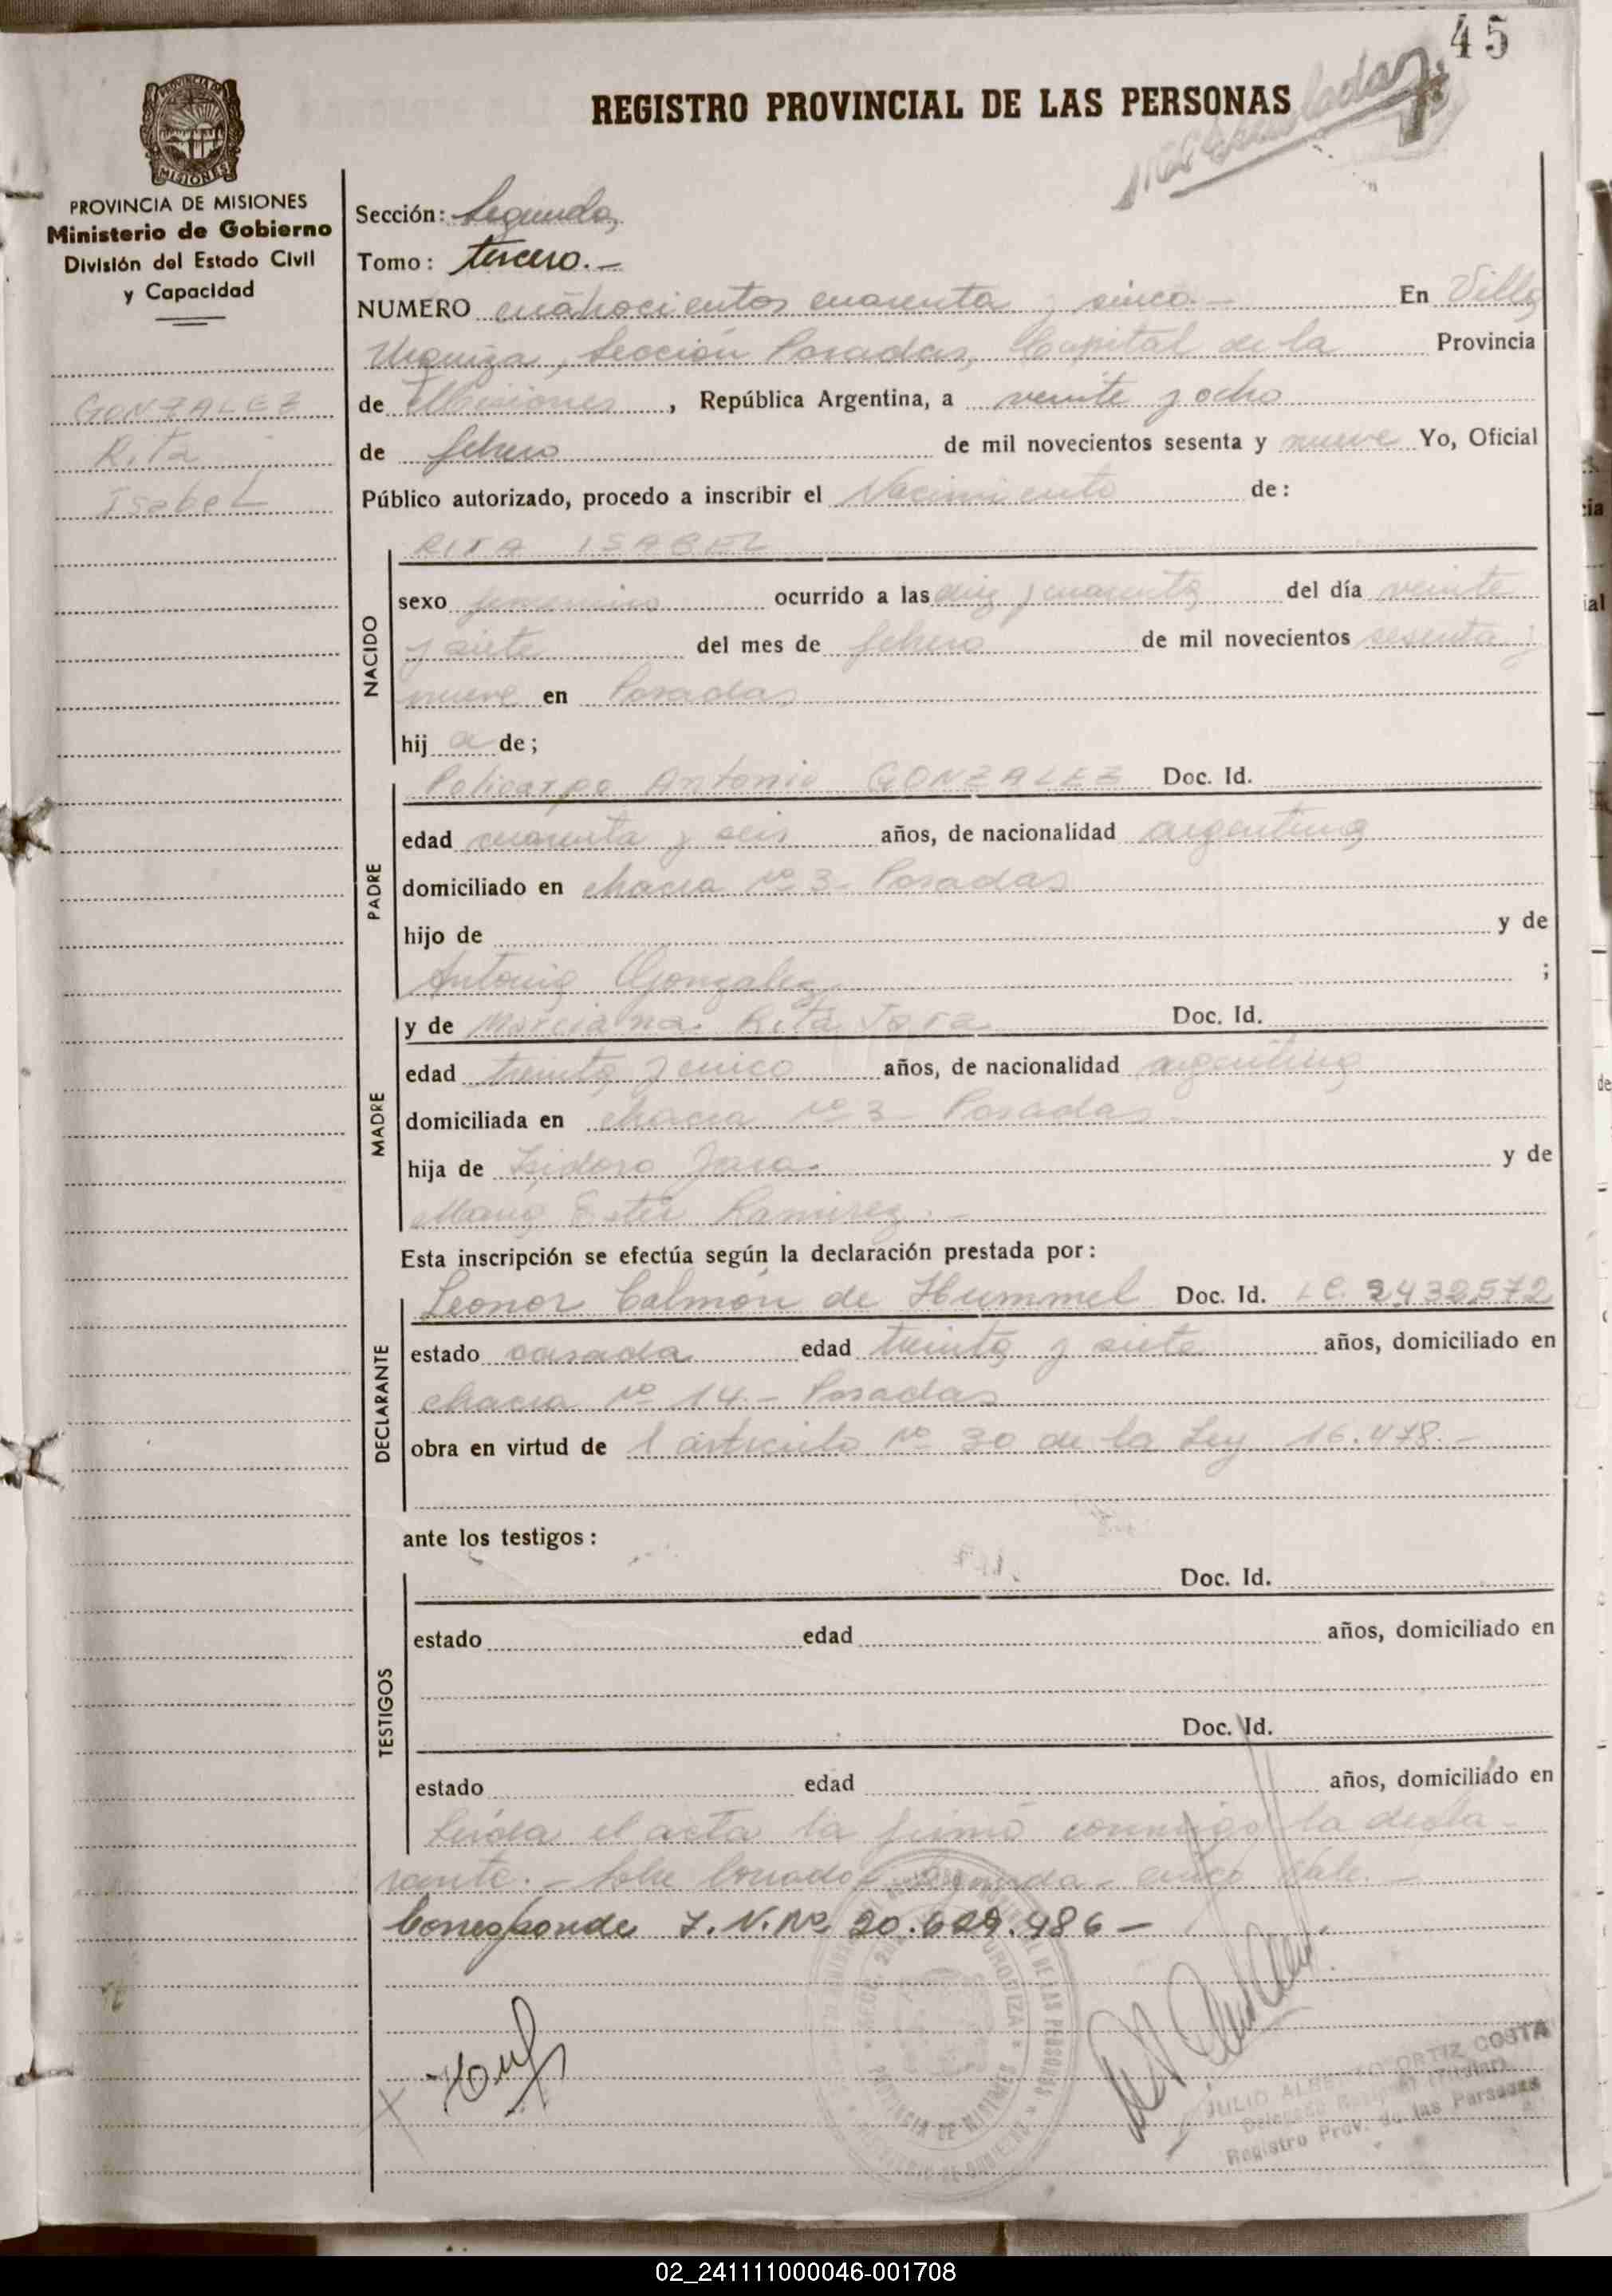 45
REGISTRO PROVINCIAL DE LAS PERSONAS
MISIONES
PROVINCIA DE MISIONES
Ministerio de Gobierno
División del Estado Civil
y Capacidad
GONZALEZ
Rita
Isabel
Sección: Segunda,
Tomo: tercero.-
NUMERO cuatrocientos cuarenta y cinco.- En Villa
Urquiza, Sección Posadas, Capital de la Provincia
de Misiones, República Argentina, a veinte y ocho
de febrero de mil novecientos sesenta y nueve Yo, Oficial
Público autorizado, procedo a inscribir el Nacimiento de:
RITA ISABEL
NACIDO
sexo femenino ocurrido a las diez y cuarenta del día veinte
y siete del mes de febrero de mil novecientos sesenta y
nueve en Posadas
hij a de;
PADRE
Policarpo Antonio GONZALEZ Doc. Id.
edad cuarenta y seis años, de nacionalidad argentina
domiciliado en chacra nº 3 - Posadas
hijo de y de
Antonia Gonzalez ;
MADRE
y de Marciana Rita Jara Doc. Id.
edad treinta y cinco años, de nacionalidad argentina
domiciliada en chacra nº 3 Posadas
hija de Isidoro Jara y de
Maria Ester Ramirez.-
Esta inscripción se efectúa según la declaración prestada por:
DECLARANTE
Leonor Calmón de Hummel Doc. Id. LC. 2432572
estado casada edad treinta y siete años, domiciliado en
chacra nº 14.- Posadas
obra en virtud de l artículo nº 30 de la Ley 16.478.-
ante los testigos:
TESTIGOS
Doc. Id.
estado edad años, domiciliado en
Doc. Id.
estado edad años, domiciliado en
Leída el acta la firmó conmigo la decla-
rante.- Sobre borrado: Segunda - cinco Vale.-
Corresponde I.N.Nº 20.629.486-
JULIO ALBERTO ORTIZ COSTA
Registro Prov. de las Personas
02_241111000046-001708